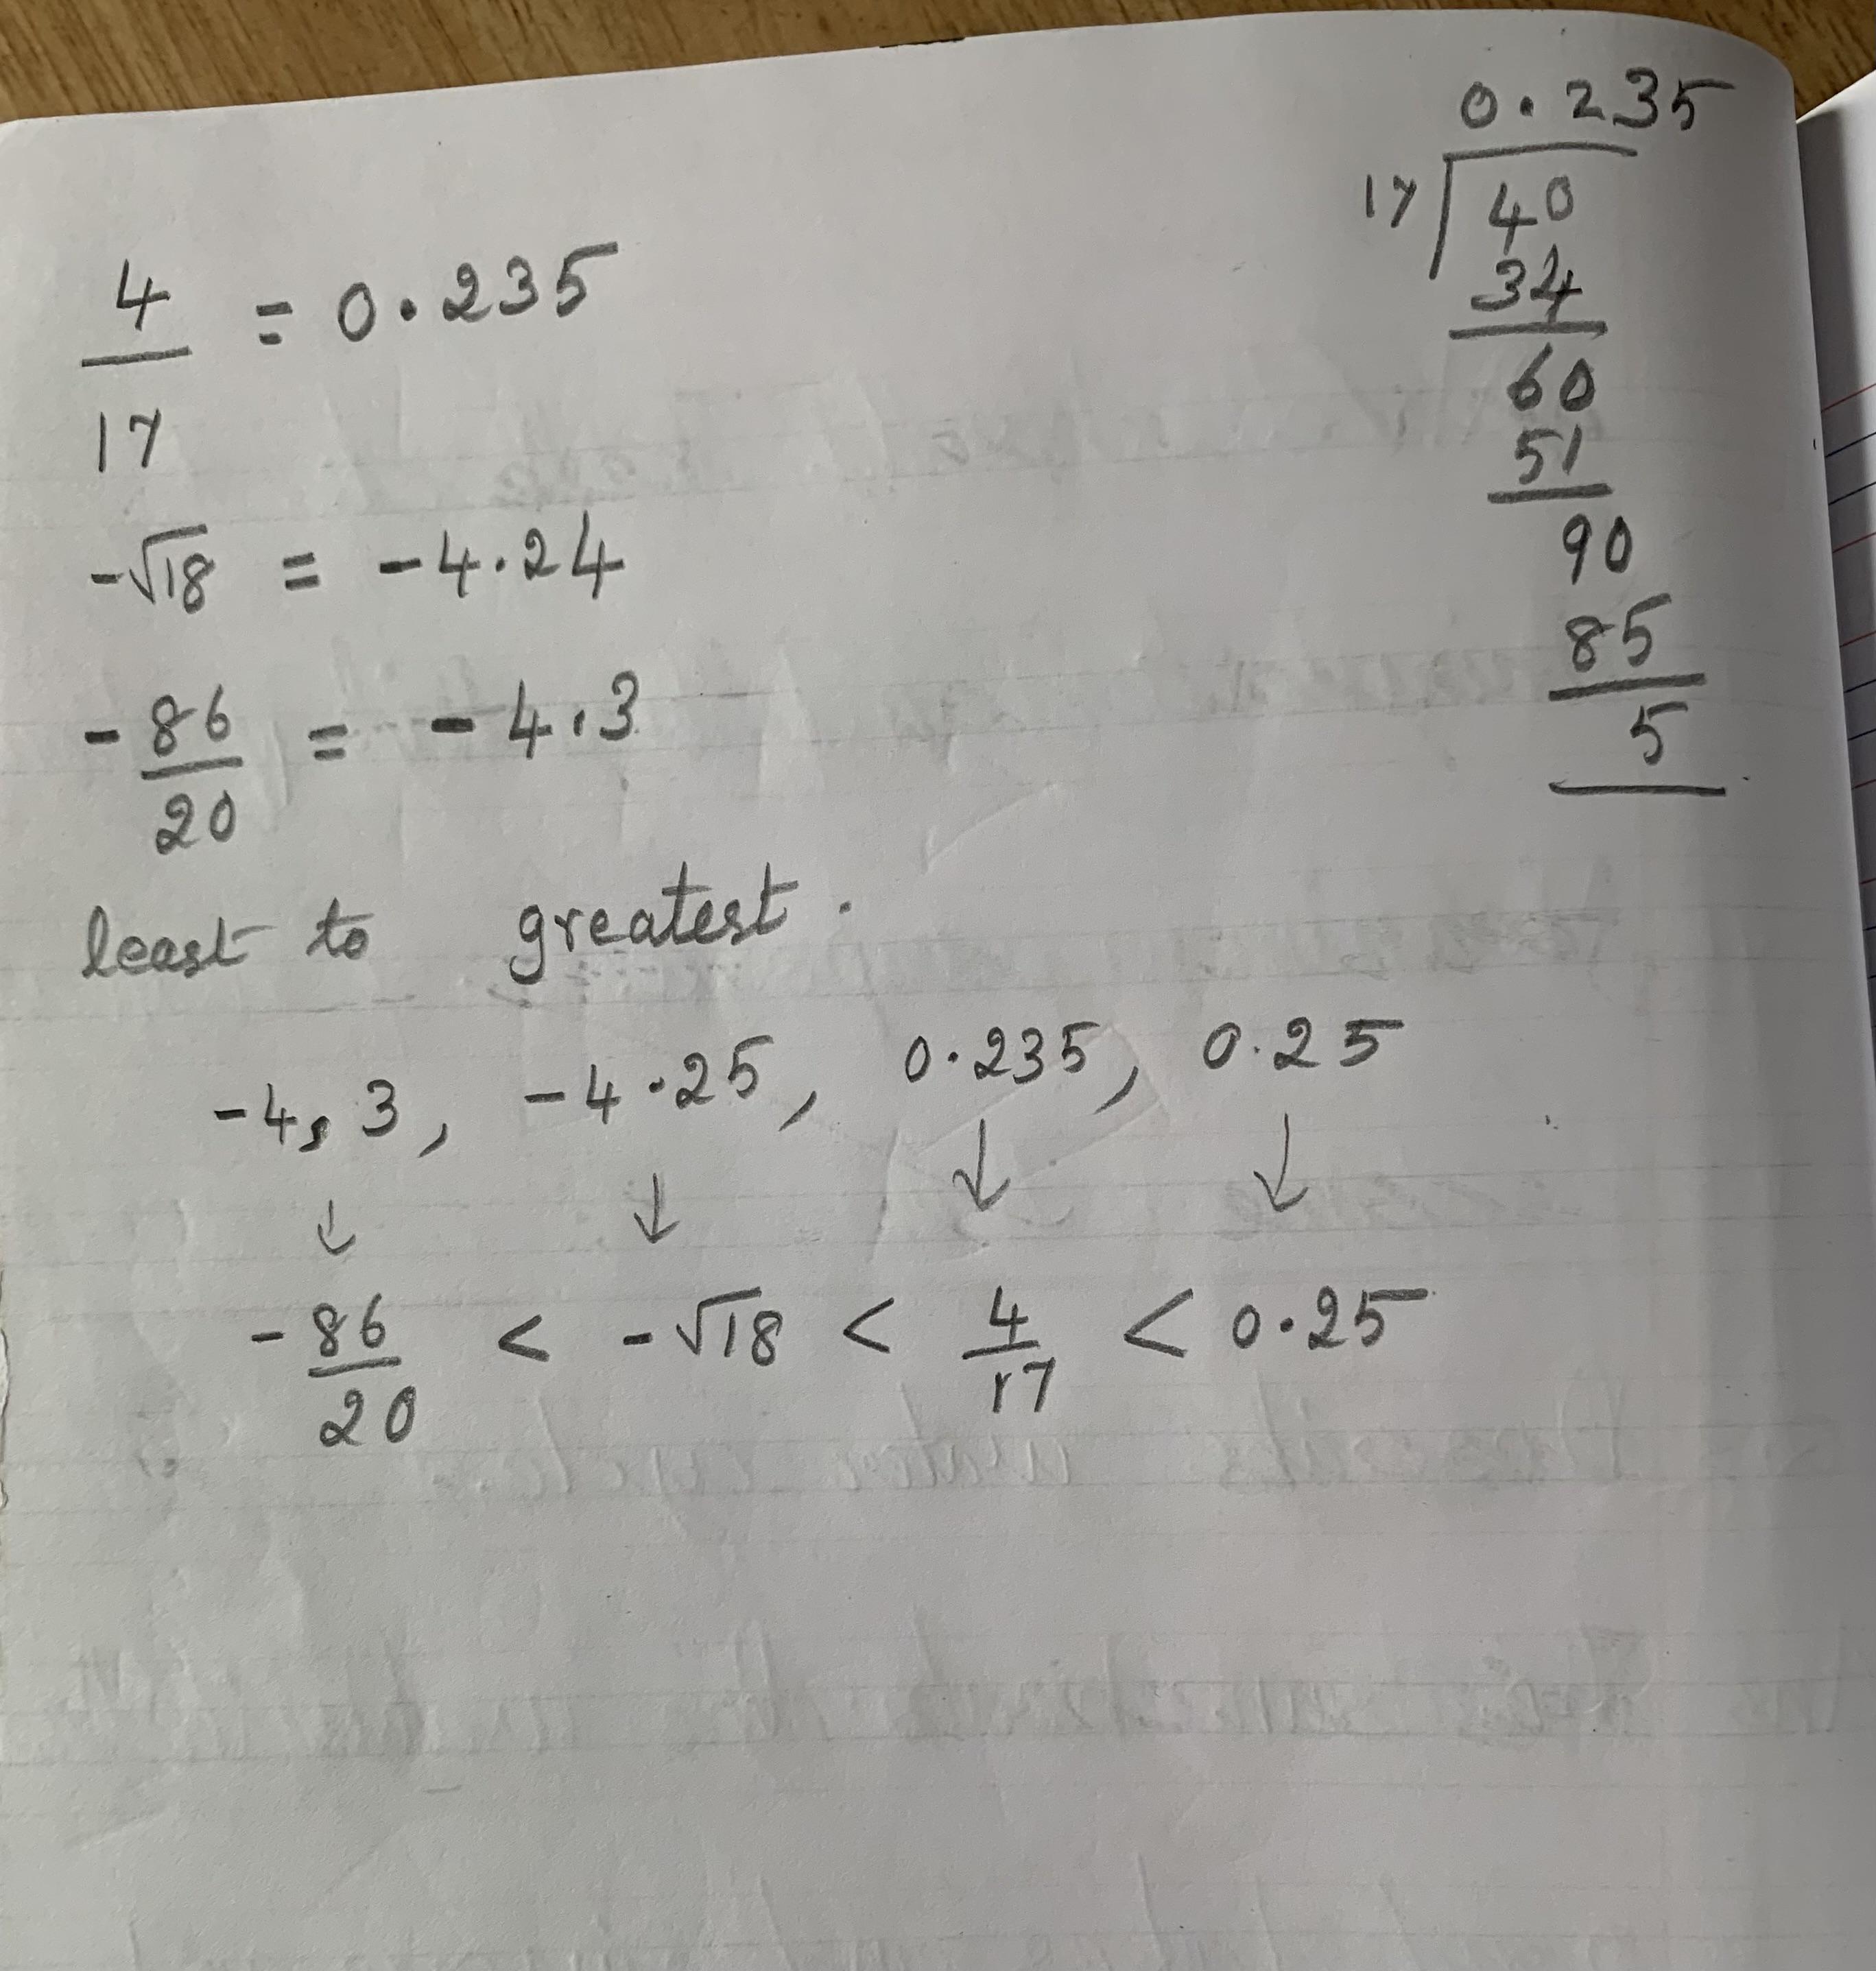 4/17 = 0.235
-√18 = -4.24
-86/20 = -4.3
least to greatest.
-4.3, -4.25, 0.235, 0.25
↓ ↓ ↓ ↓
-86/20 < -√18 < 4/17 < 0.25
0.235
17 40
34
60
51
90
85
5